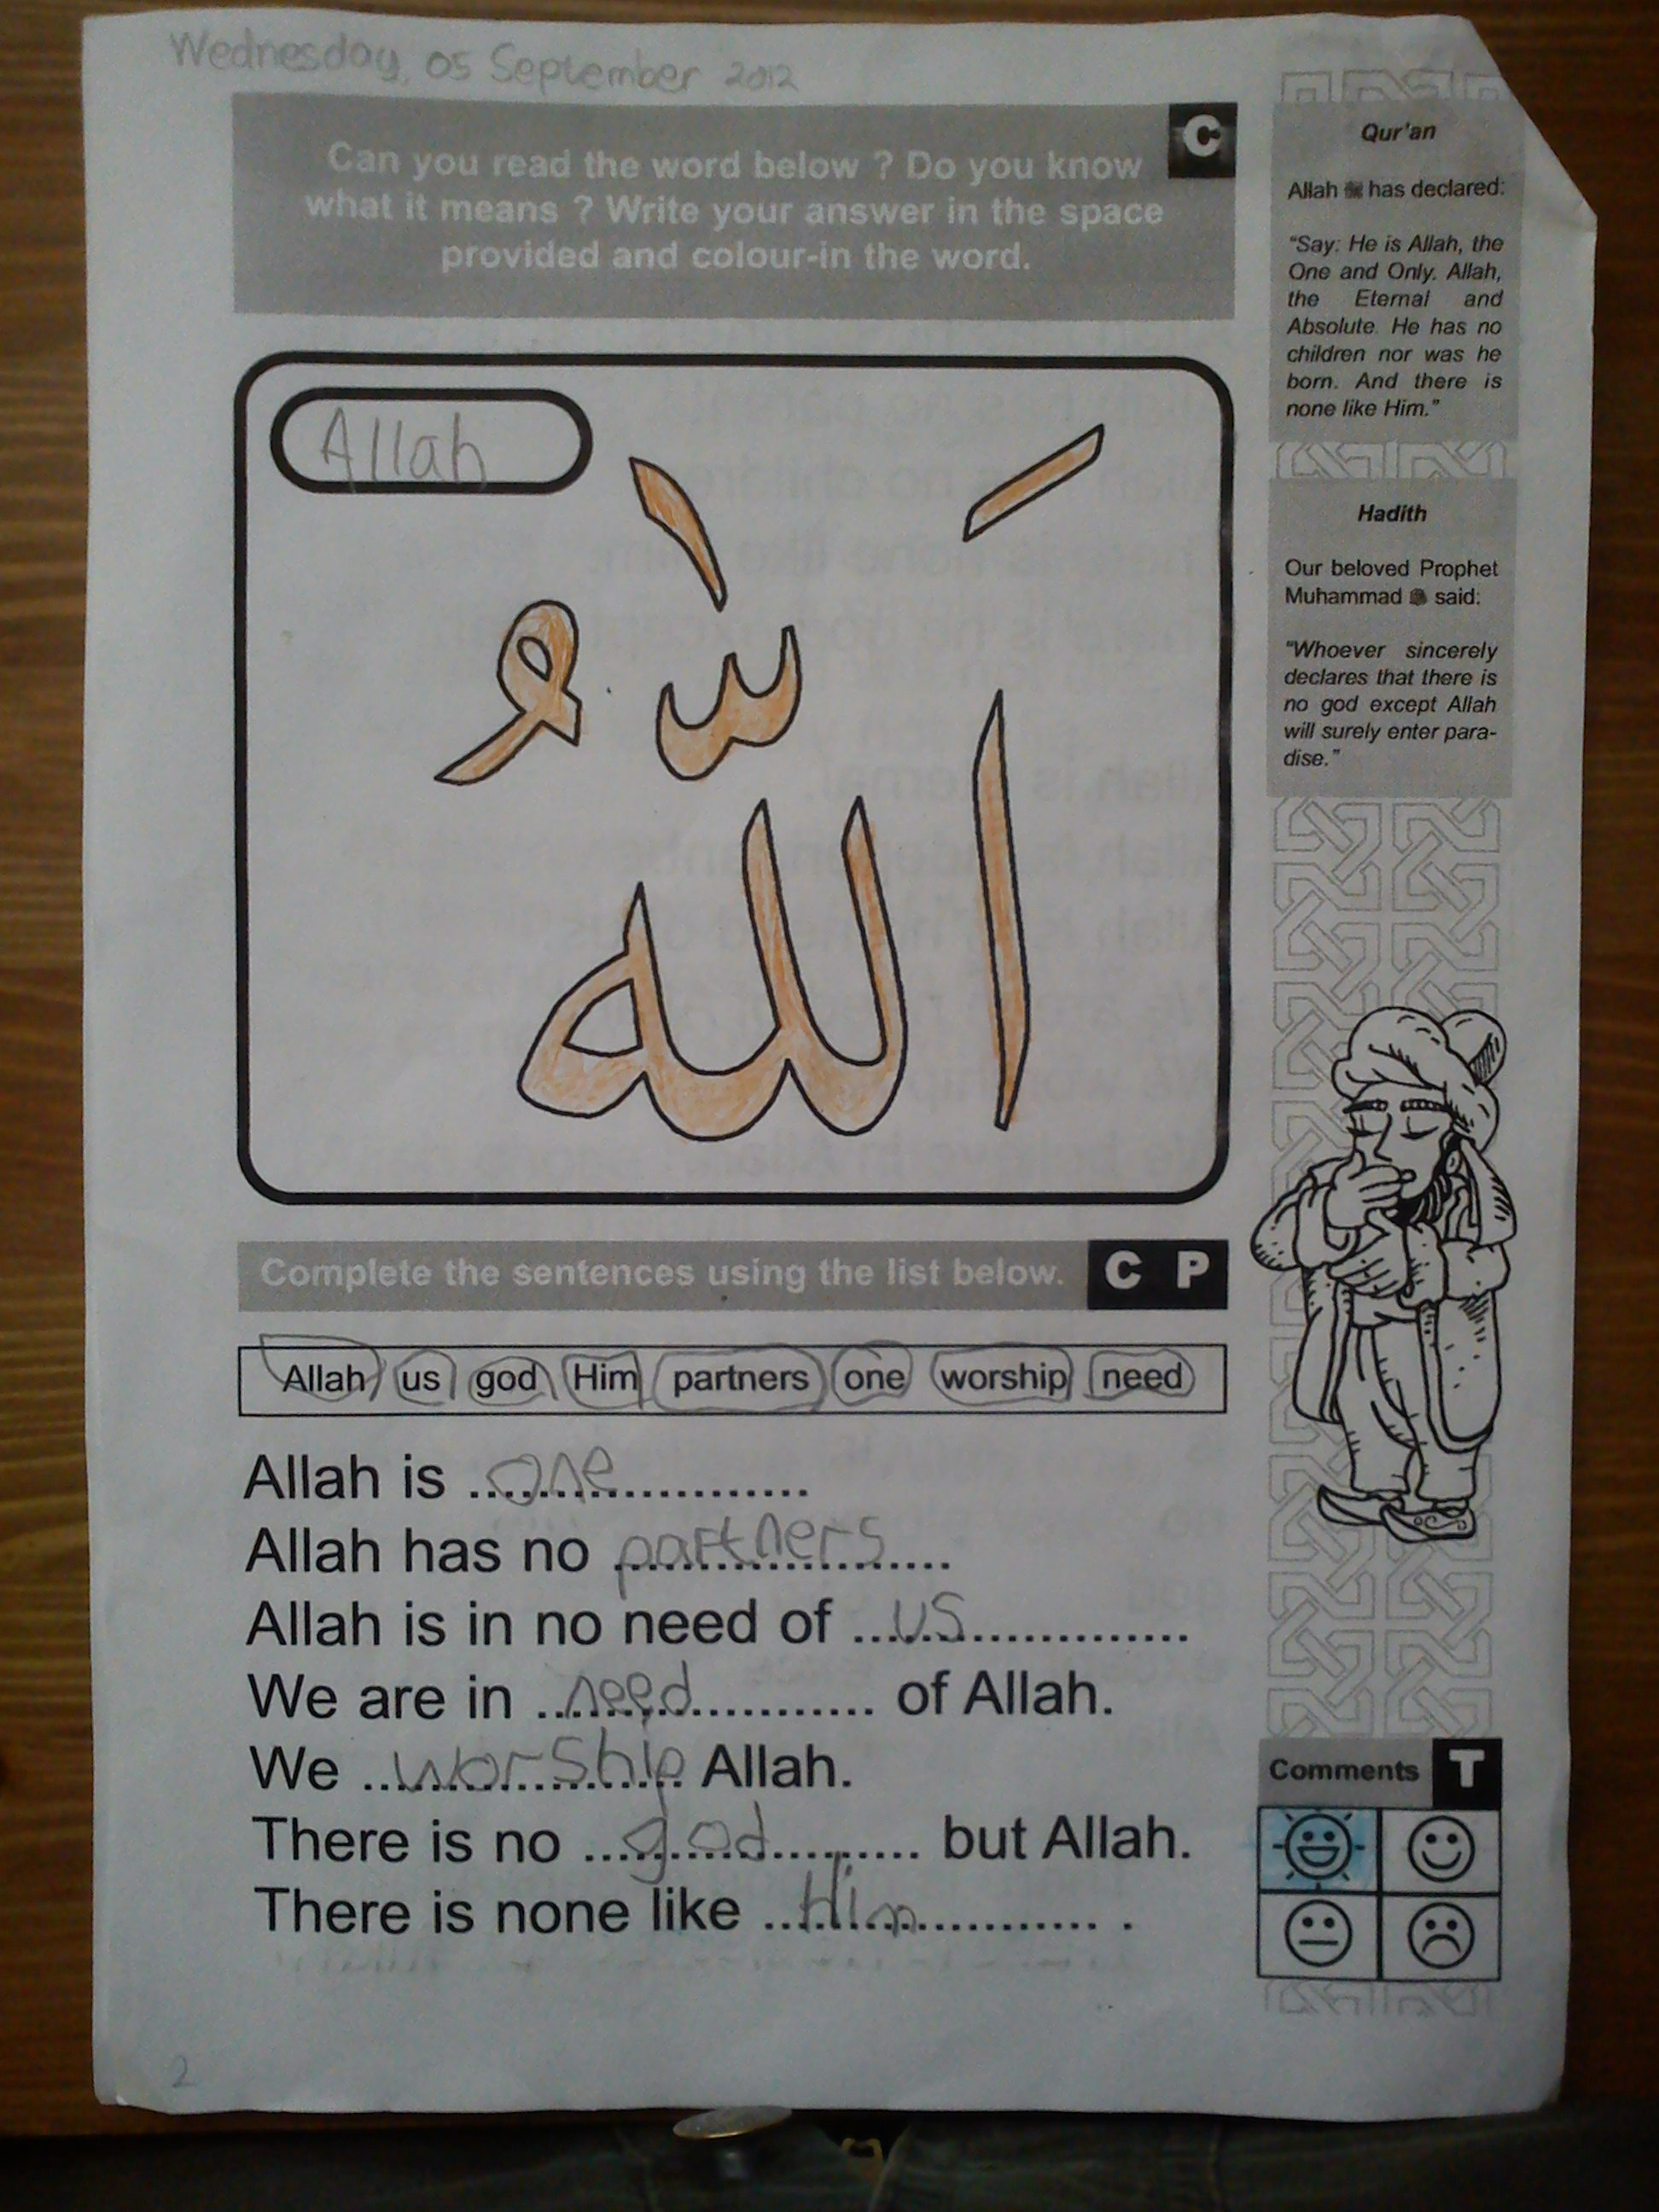 Wednesday, 05 September 2012
C
Can you read the word below ? Do you know
what it means ? Write your answer in the space
provided and colour-in the word.
Allah
اَللّٰهُ
Complete the sentences using the list below.
C P
Allah us god Him partners one worship need
Allah is ...one...
Allah has no ...partners...
Allah is in no need of ...us...
We are in ...need... of Allah.
We ...worship... Allah.
There is no ...god... but Allah.
There is none like ...Him... .
2
Qur'an
Allah ﷻ has declared:
"Say: He is Allah, the
One and Only. Allah,
the Eternal and
Absolute. He has no
children nor was he
born. And there is
none like Him."
Hadith
Our beloved Prophet
Muhammad ﷺ said:
"Whoever sincerely
declares that there is
no god except Allah
will surely enter para-
dise."
Comments T